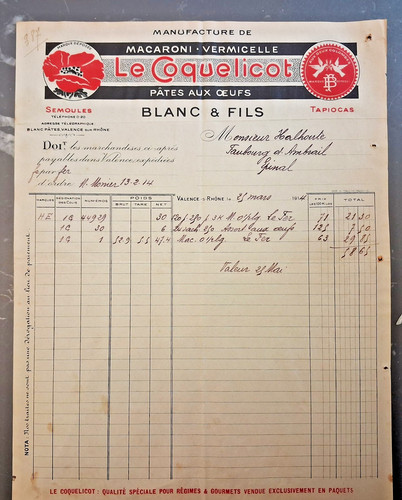 387
MANUFACTURE DE
MACARONI · VERMICELLE
Le Coquelicot
PÂTES AUX ŒUFS
MARQUE DÉPOSÉE
BF
SEMOULES
BLANC & FILS
TAPIOCAS
TÉLÉPHONE 0.90
ADRESSE TÉLÉGRAPHIQUE:
BLANC, PÂTES, VALENCE SUR RHÔNE
Monsieur
Faubourg d'Ambrail
Epinal
Doit les marchandises ci-après
payables dans Valence, expédiées
par fer
d'ordre 13-2-14
VALENCE S/ RHÔNE, le 25 mars 1914
MARQUES DÉSIGNATION DES COLIS NUMÉROS POIDS BRUT TARE NET PRIX TOTAL
1C 44929 30 Le Fer 71 21 30
1C 30 6 125 7 50
1C 1 52.9 5.5 47.4 Mac. Le Fer 63 29 85
58 65
Valeur 25 Mai
NOTA: Nos traites ne sont pas une dérogation au lieu de paiement.
LE COQUELICOT: QUALITÉ SPÉCIALE POUR RÉGIMES & GOURMETS VENDUE EXCLUSIVEMENT EN PAQUETS